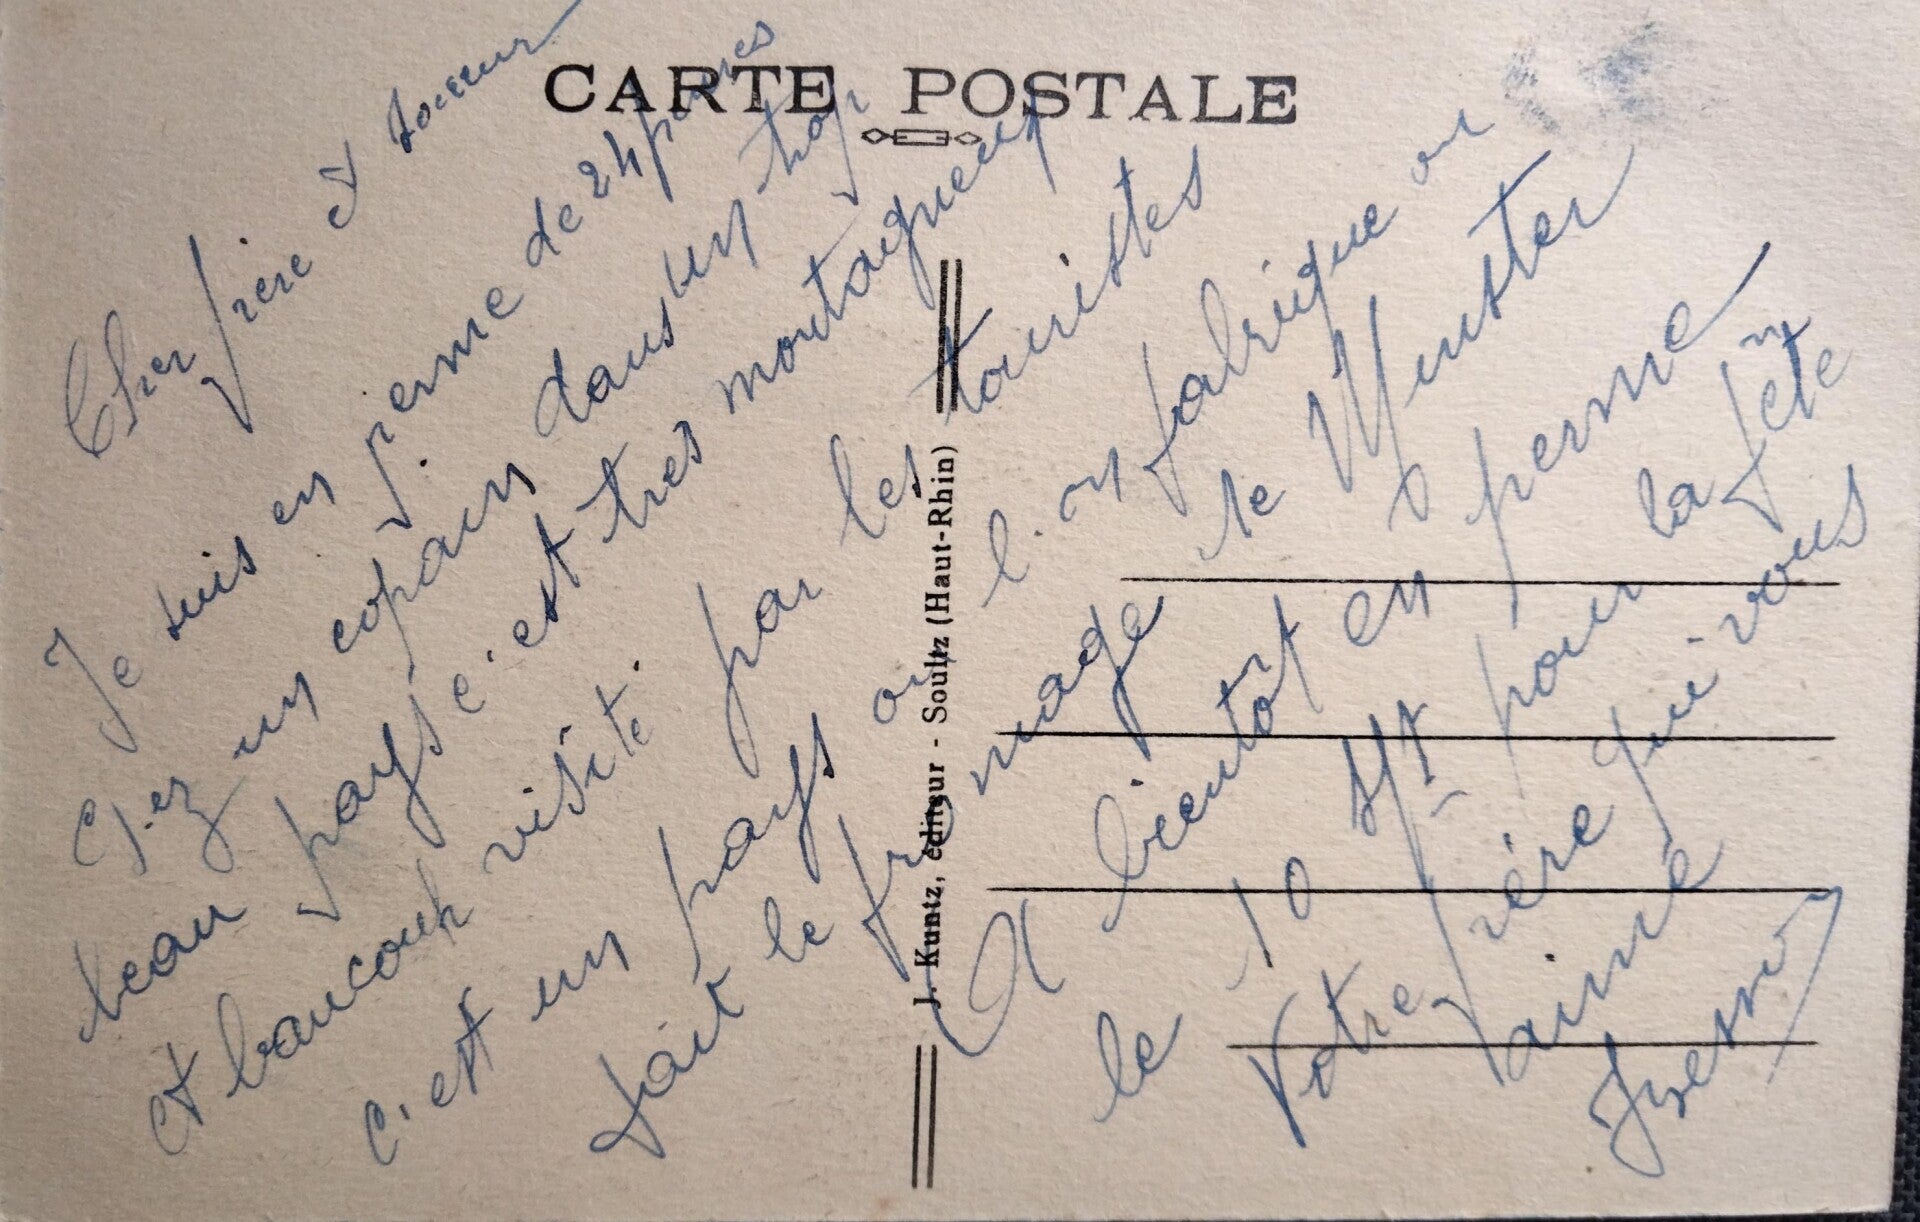 CARTE POSTALE
Cher frère et soeur
Je suis en perme de 24 heures
Cez un copain dans un trop
beau pays c'est tres montagneux
et baucoup visité par les touristes
c'est un pays ou l'on fabrique ou
fait le fromage le Munster
A bientôt en perme
le 10 Spt pour la fête
Votre frère qui vous
aime
J. Kuntz, éditeur - Soultz (Haut-Rhin)